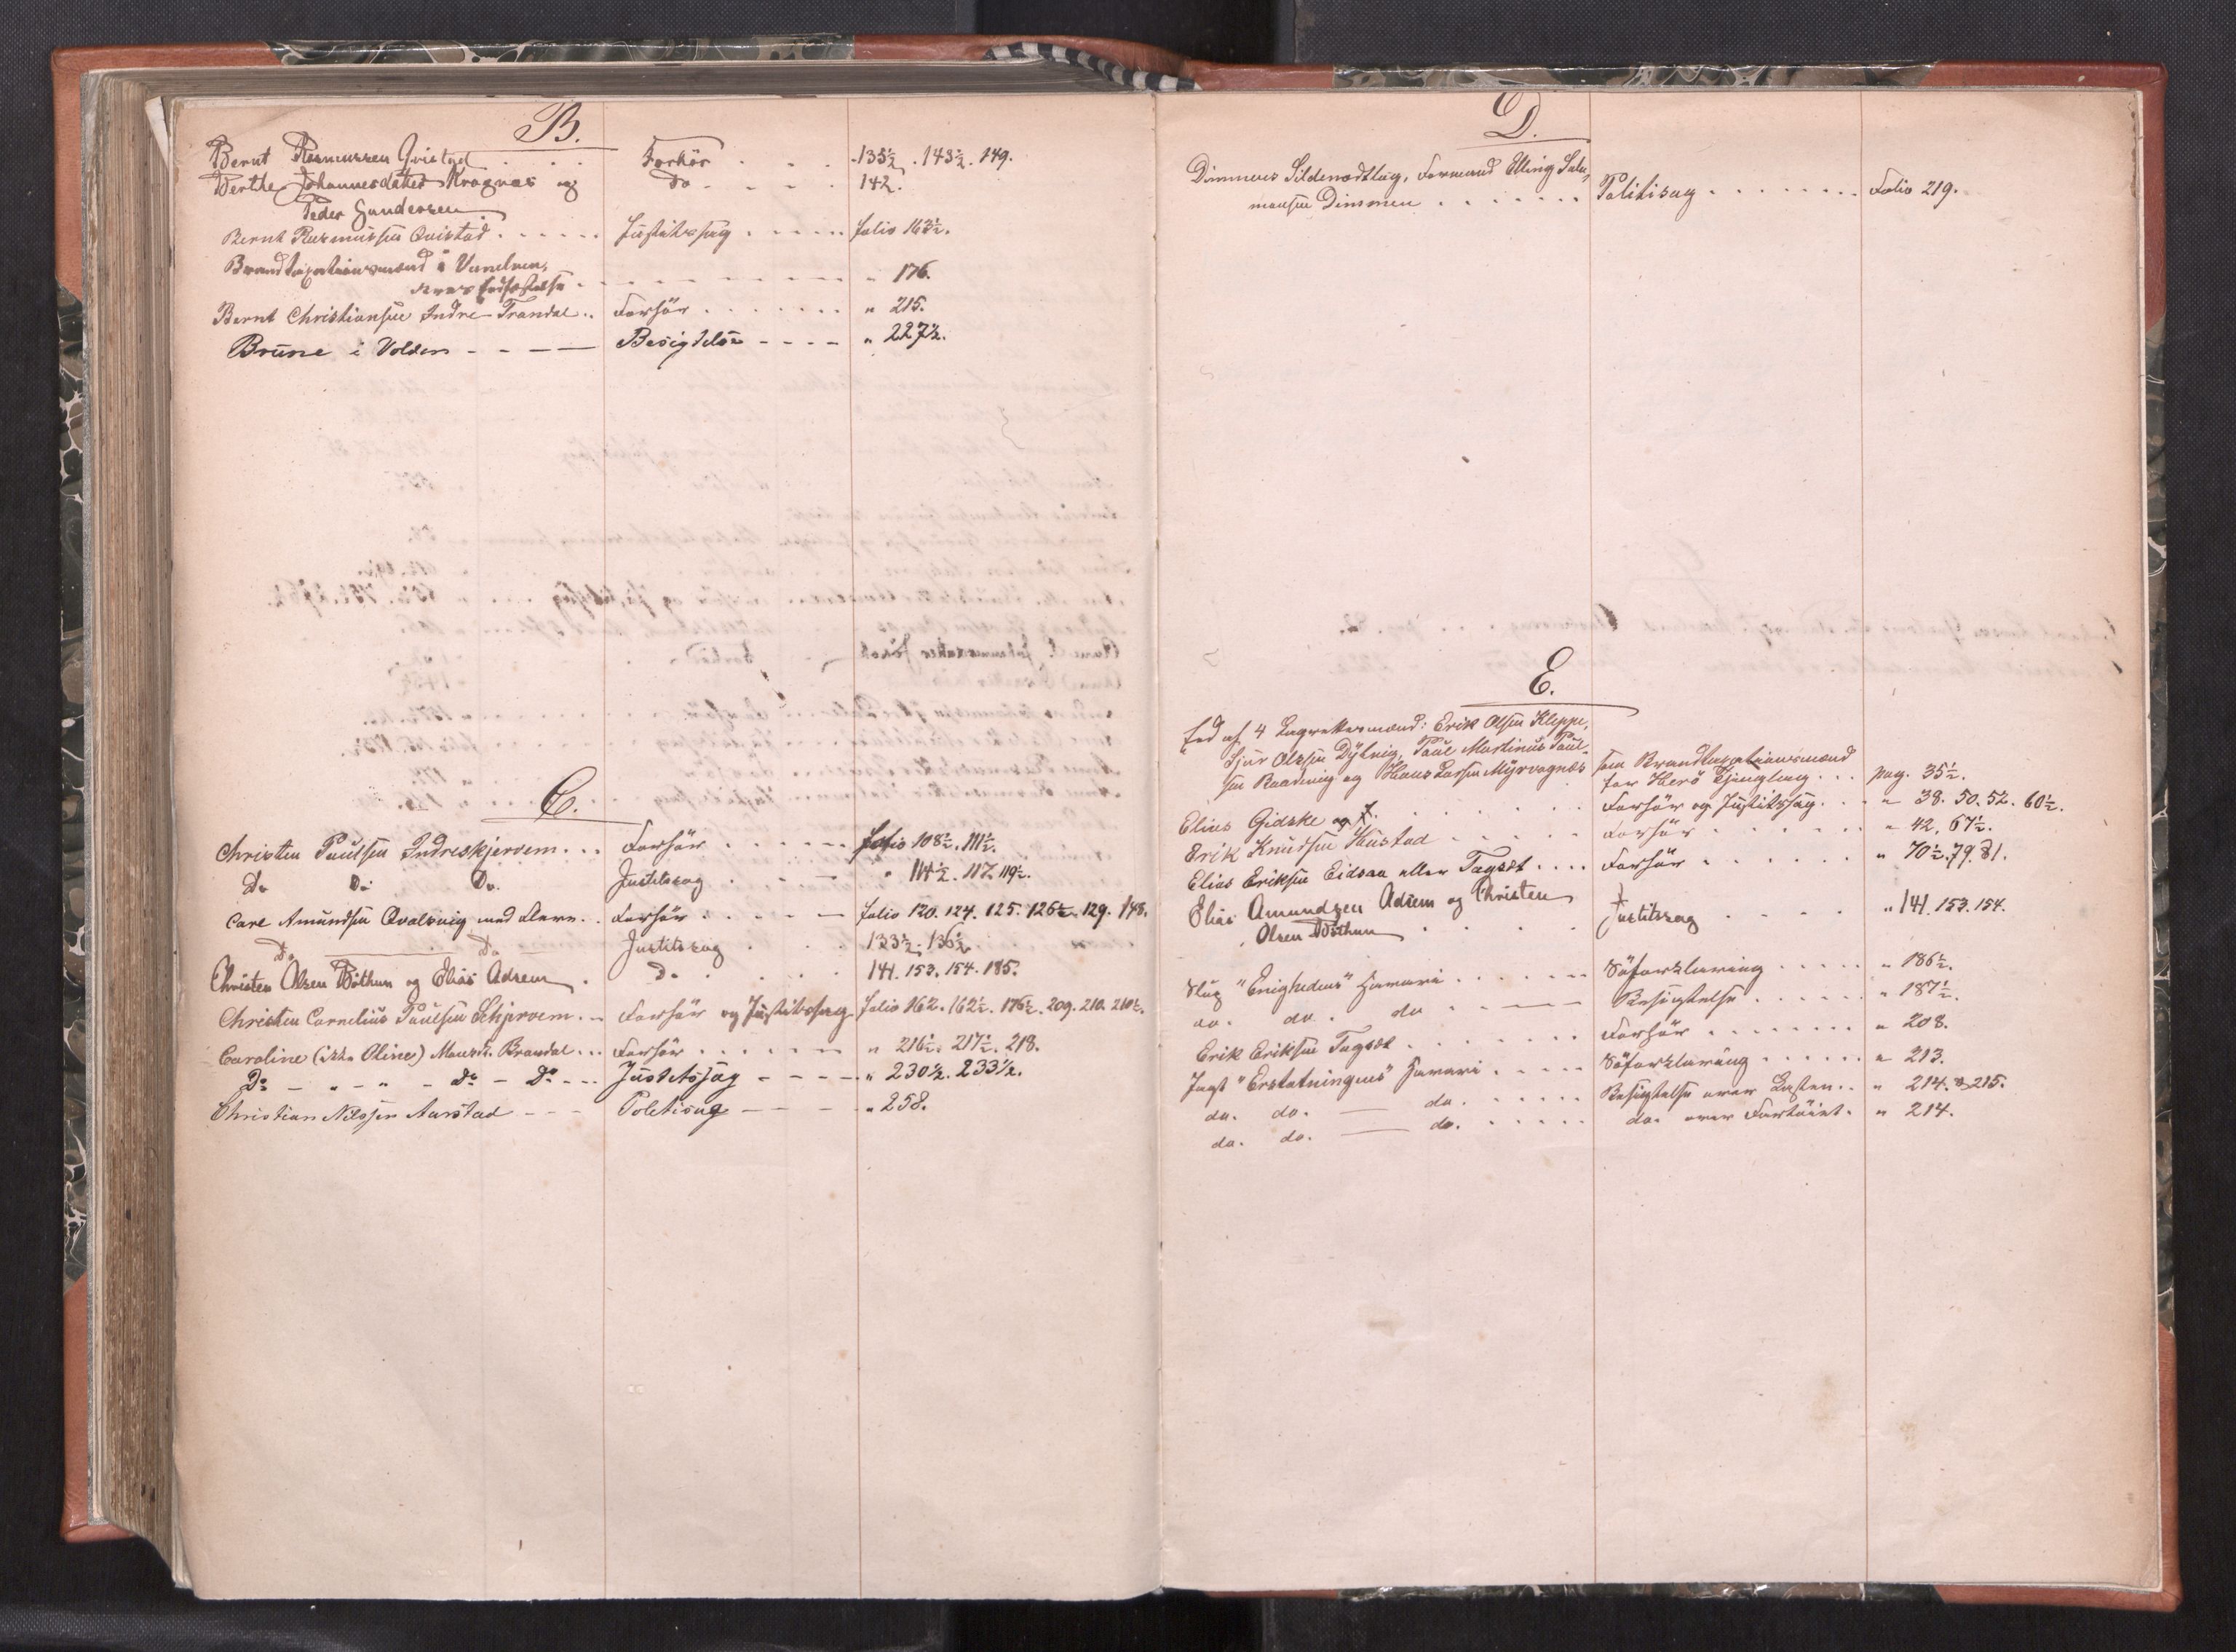 B.
Bernt Rasmussen Qvistad . . . Forhör . . . 135½. 143½. 149.
Berthe Johannesdatter Kragnæs og Do . . . 142.
Peder Gundersen
Bernt Rasmussen Qvistad . . . . . Justitssag . . . . . folio 163½.
Brandtaxationsmænd i Vanelven,
deres Edfæstelse . - - - - - - - " 176.
Bernt Christiansen Indre-Trandal . . Forhör . . . . . . . " 215.
Brune i Volden - - - - Besigtelse - - - - " 227½.
C.
Christen Paulsen Indreskjervem . . . Forhör . . . . . folio 108½. 111½.
Do Do Do. Justitssag . . - " 114½. 117. 119½.
Carl Amundsen Qvalsvig med Flere . . Forhör . . . . - folio 120. 124. 125. 126½. 129. 148.
Do Do Justitssag . . . 133½. 136½.
Christen Olsen Böthun og Elias Adsem . Do . . . . 141. 153. 154. 185.
Christen Cornelius Paulsen Schjervem . . Forhör og Justitssag folio 162. 162½. 176½. 209. 210. 210½.
Caroline (ikke Oline) Monsdr. Brandal . . . Forhör . . . . . . " 216½. 217½. 218.
Do - " - " - Do - Do - - - Justitssag - - - - " 230½. 233½.
Christian Nilssen Aarstad - - - Politisag - - - - " 258.
D.
Dimmens Sildenodtlag, Formand Elling Salo-
monsen Dimmen . . . . . . . Politisag . . . . . . . . Folio 219.
E.
Ed af 4 Lagrettesmænd: Erik Olsen Kleppe,
Sjur Olsen Dybvig, Paul Martinus Paul-
sen Raadvig og Hans Larsen Myrvognæs som Brandtaxationsmænd
for Herö Thinglag . . . pag. 35½.
Elias Gidske og fl. . . . . . . Forhör og Justitssag . . . " 38. 50. 52. 60½.
Erik Knudsen Hustad . . . . . Forhör . . . . . . . " 42, 67½.
Elias Eriksen Eidsaa eller Tagset . . . . Forhör . . . . . . " 70½. 79. 81.
Elias Amundsen Adsem og Christen
Olsen Böthun . . . . . Justitssag . . . . " 141. 153. 154.
Slup "Enighedens" Havari . . . . . . Söforklaring . . . . . " 186½.
do. do. do - - - Besigtelse . . . . . . " 187½.
Erik Eriksen Tagset . . . . . . . Forhör . . . . . . . . " 208.
Jagt "Erstatningens" Havari . . . . . Söforklaring . . . . . . " 213.
do. do. — do. . . . . . . Besigtelse over Lasten . . " 214. & 215.
do. do. — do. . . . . . . do. over Fartöiet . " 214.